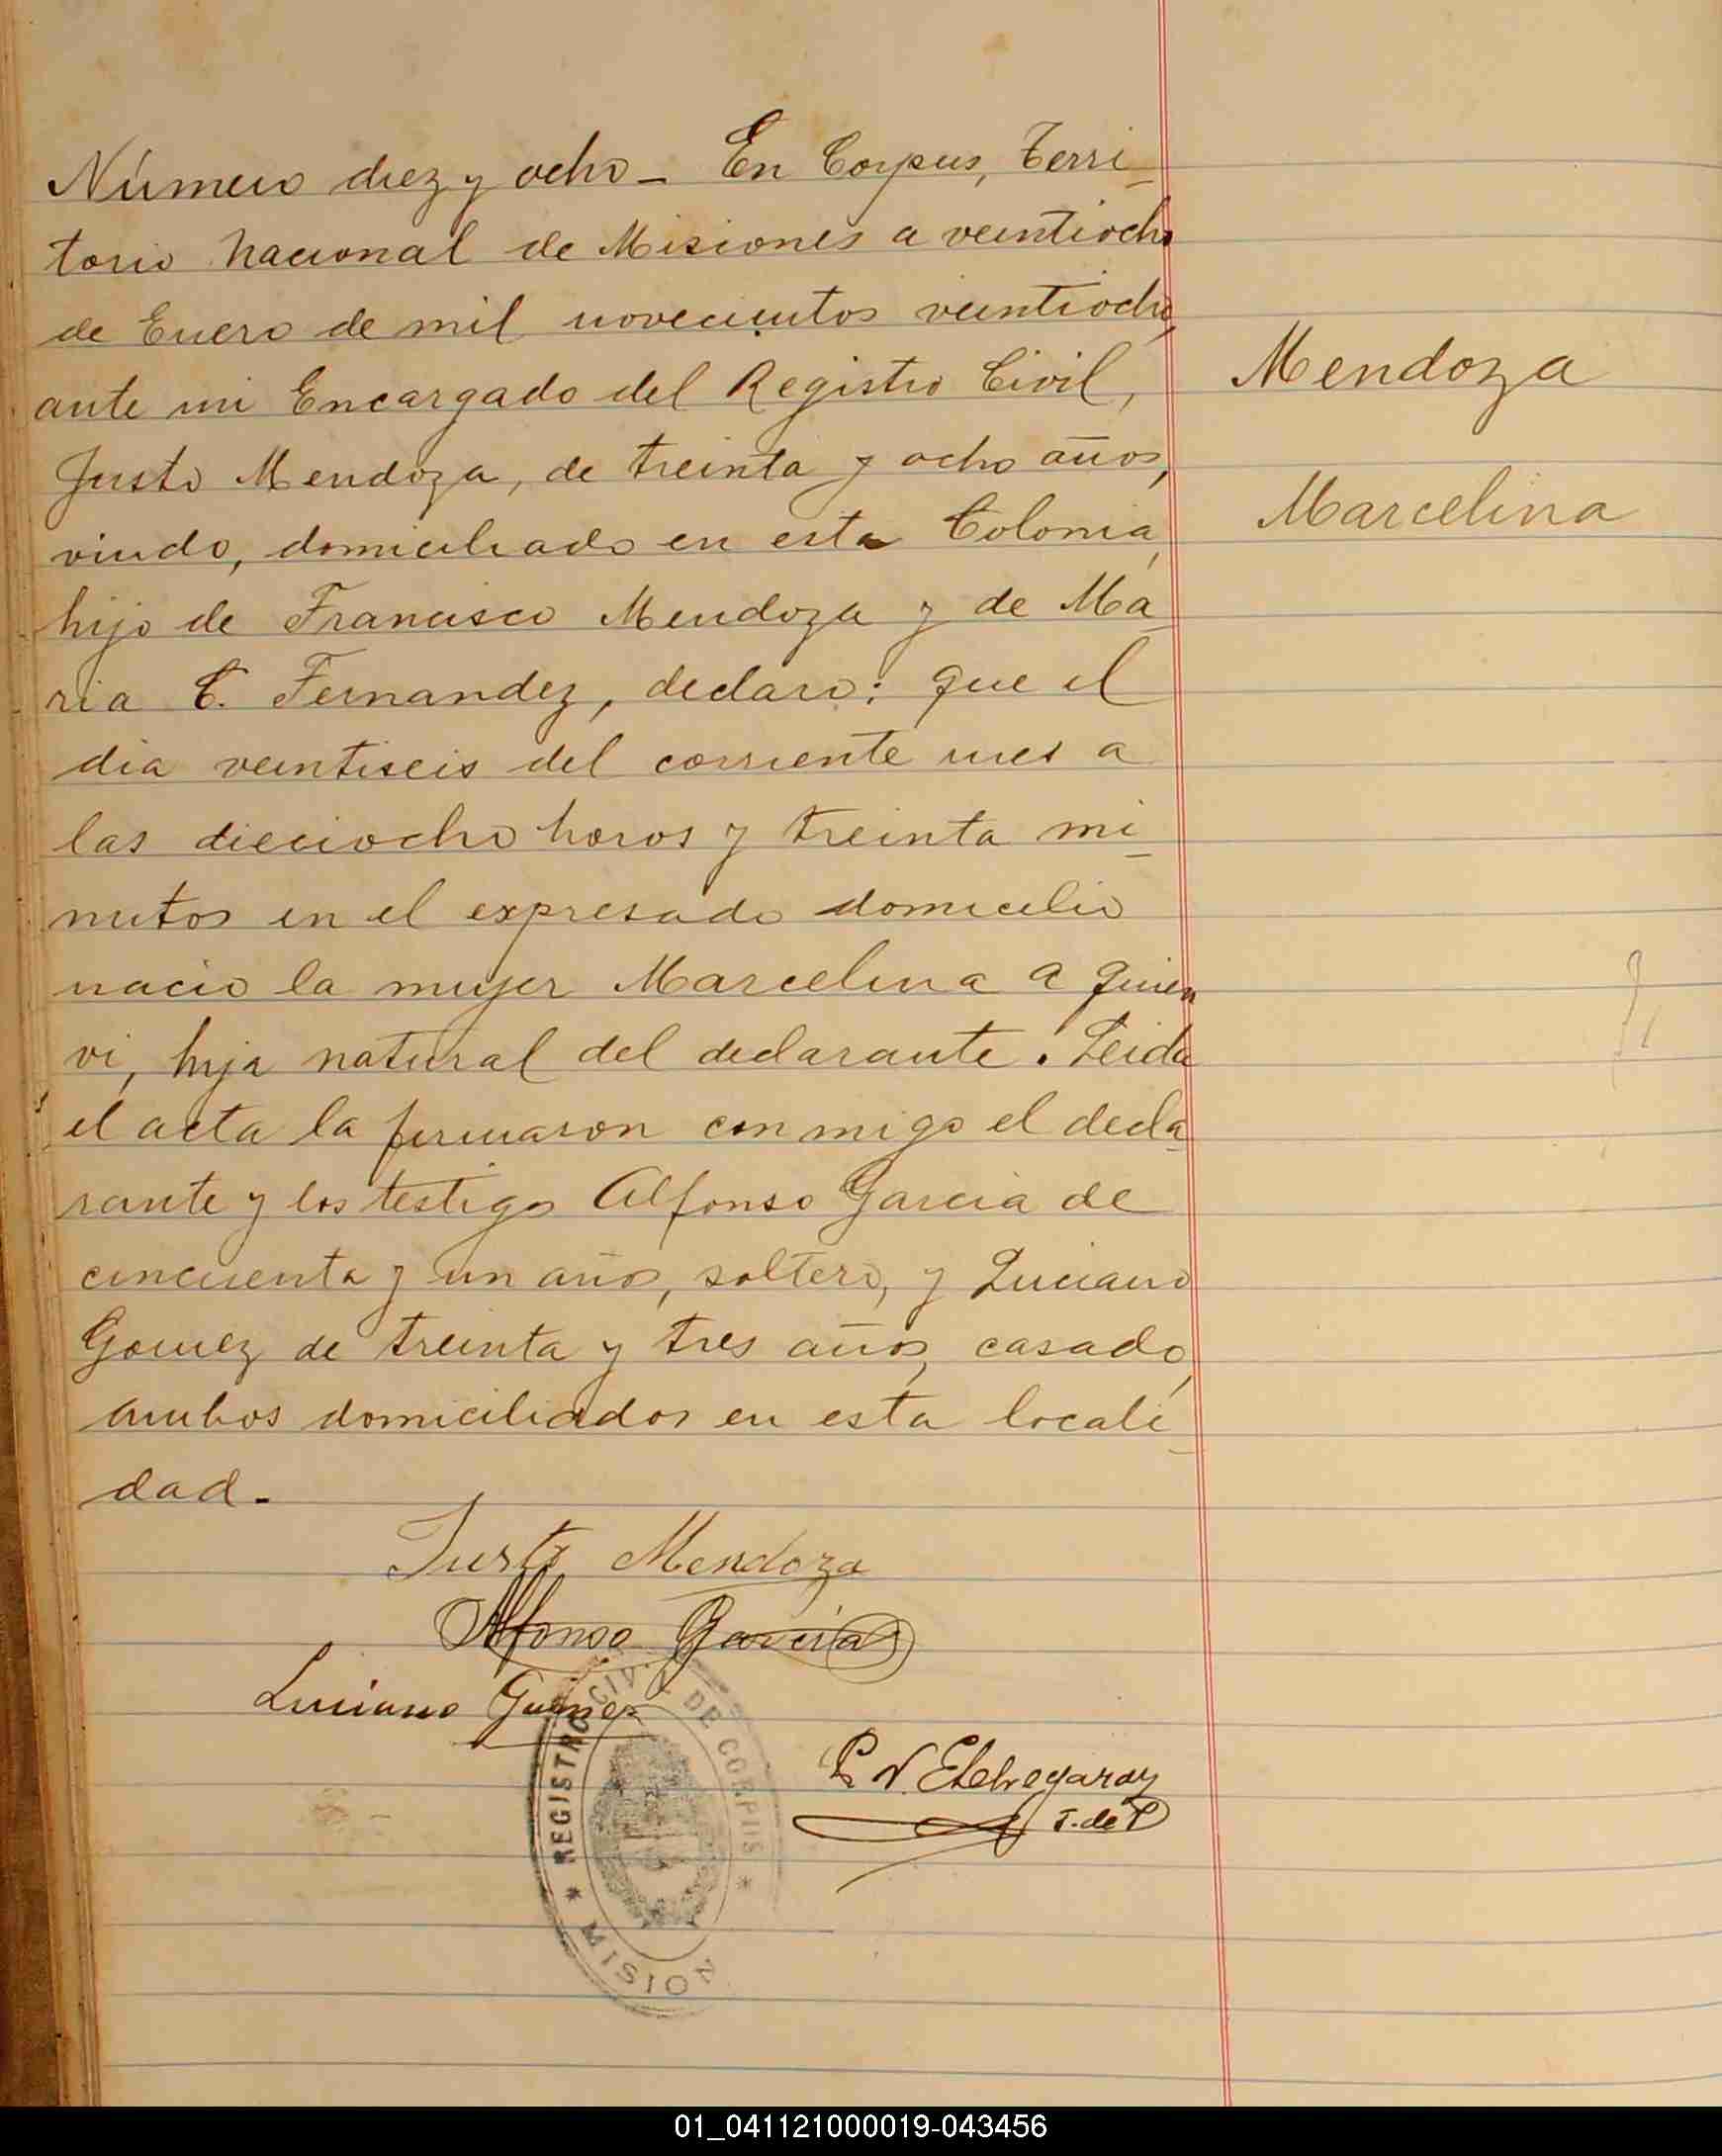 Número diez y ocho - En Corpus, Terri-
torio Nacional de Misiones a veintiocho
de Enero de mil novecientos veintiocho,
ante mi Encargado del Registro Civil,
Justo Mendoza, de treinta y ocho años,
viudo, domiciliado en esta Colonia,
hijo de Francisco Mendoza y de Ma-
ria C. Fernandez, declaro: que el
dia veintiseis del corriente mes a
las dieciocho horas y treinta mi-
nutos en el expresado domicilio
nacio la mujer Marcelina a quien
vi, hija natural del declarante. Leida
el acta la firmaron conmigo el decla-
rante y los testigos Alfonso Garcia de
cincuenta y un años, soltero, y Luciano
Gomez de treinta y tres años, casado,
ambos domiciliados en esta locali-
dad.-
Mendoza
Marcelina
Justo Mendoza
Alfonso Garcia
Luciano Gomez
P. N. Etchegaray
J. de P
REGISTRO CIVIL DE CORPUS
* MISION *
01_041121000019-043456